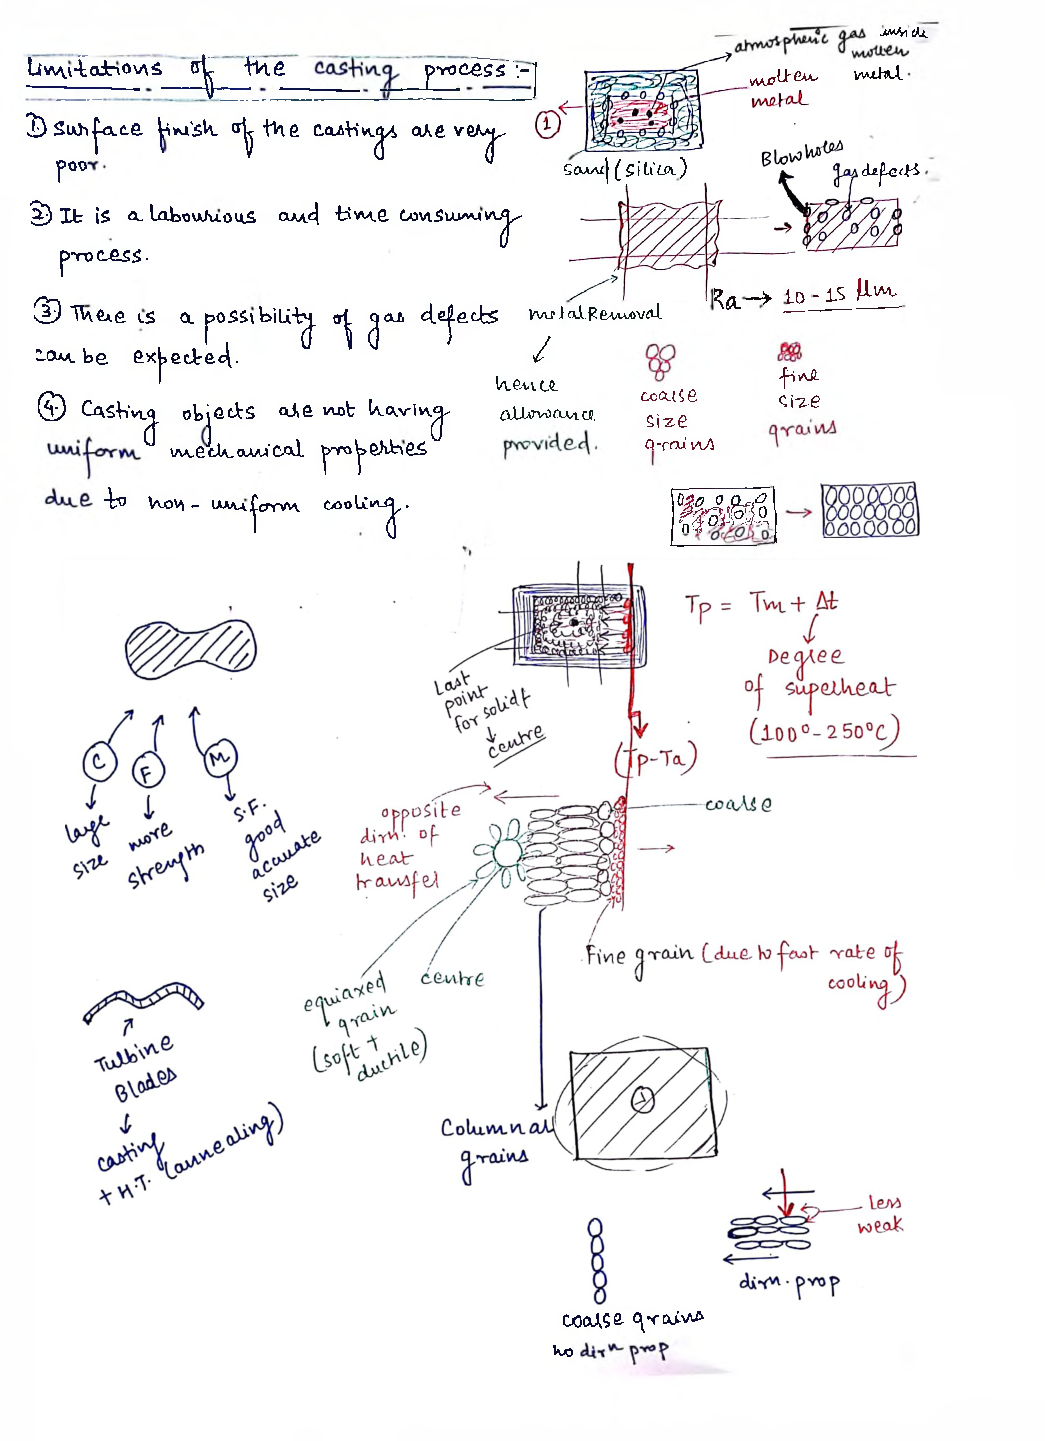 Limitations of the casting process:-
① Surface finish of the castings are very
poor.
② It is a labourious and time consuming
process.
③ There is a possibility of gas defects
can be expected.
④ Casting objects are not having
uniform mechanical properties
due to non-uniform cooling.
atmospheric gas inside
molten
metal.
molten
metal
①
Sand (silica)
Blowholes
gas defects.
Ra → 10-15 μm
metal Removal
hence
allowance
provided.
coarse
size
grains
fine
size
grains
Tp = Tm + Δt
Degree
of superheat
(100°-250°C)
Last
point
for solidf
centre
(Tp-Ta)
C
F
M
large
size
more
strength
S.F.
good
acauate
size
opposite
dirn. of
heat
transfer
coarse
Fine grain (due to fast rate of
cooling)
equiaxed
grain
(soft +
ductile)
centre
Turbine
Blades
casting
+ H.T. (annealing)
Columnal
grains
less
weak
dirn. prop
coarse grains
no dirn prop